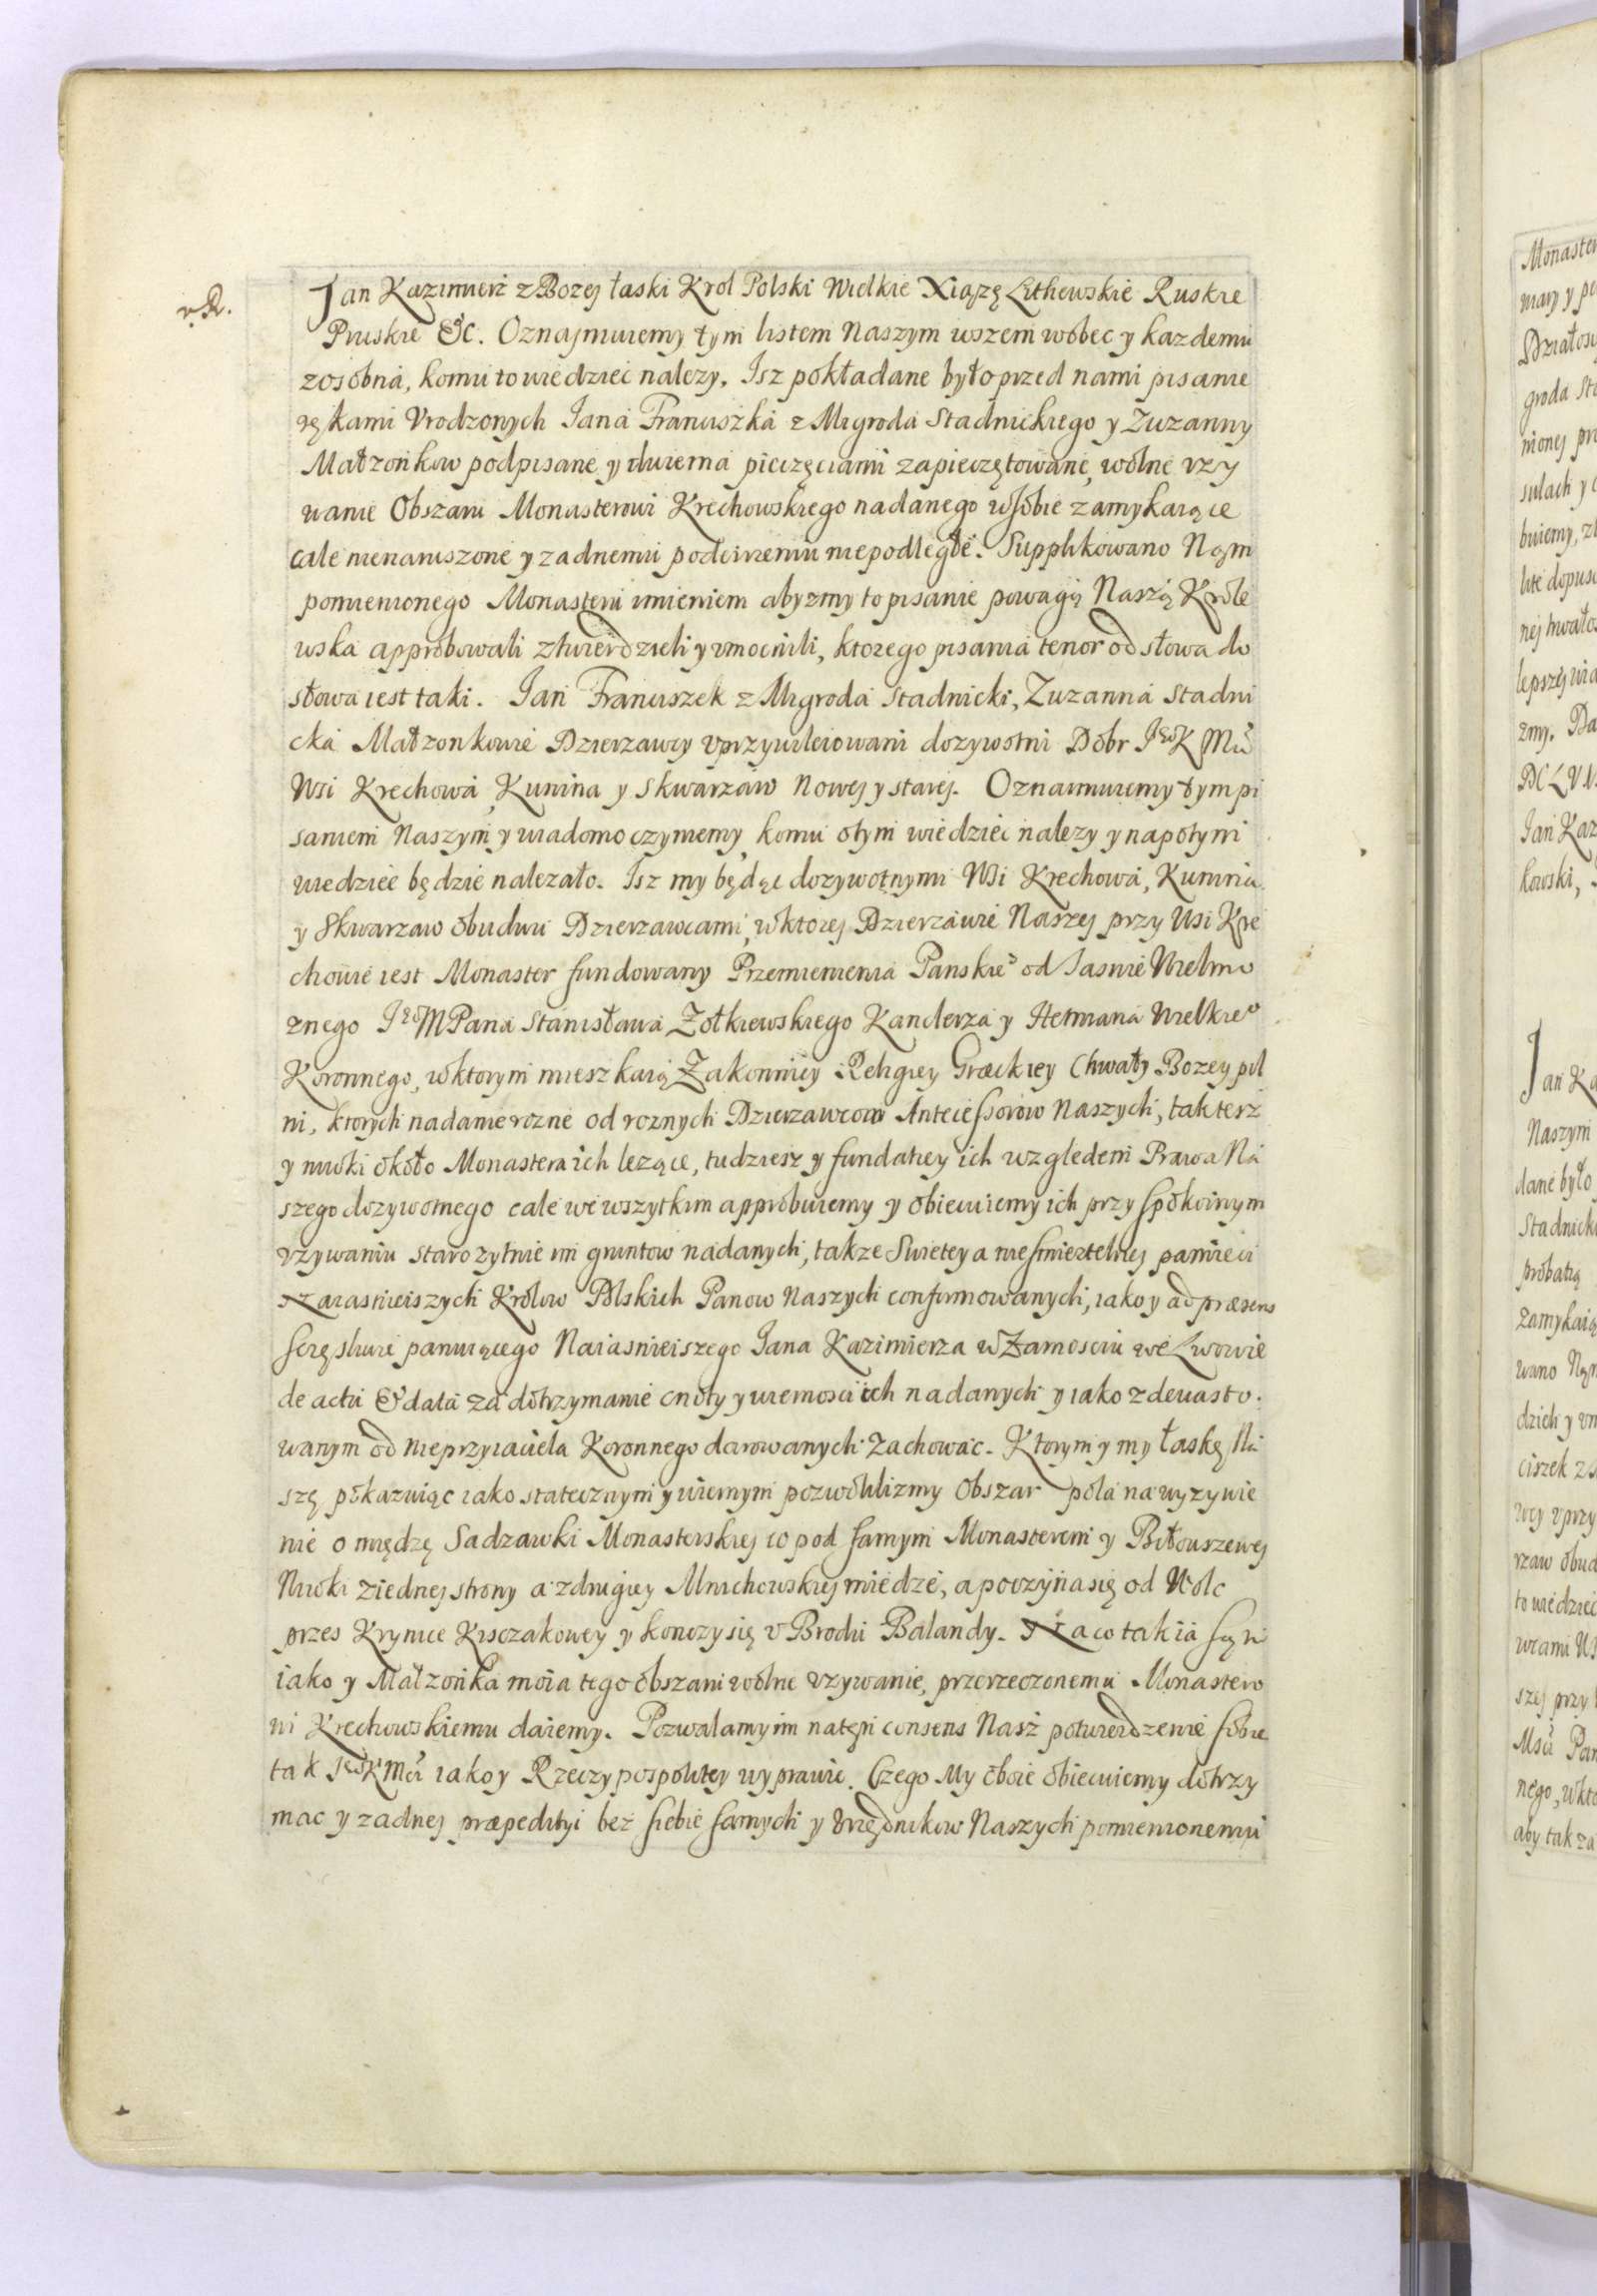 Jan Kazimierz z Bozej łaski Krol Polski Wielkie Xiążę Lithewskie Ruskie
Pruskie &c. Oznajmuiemy tym listem Naszym wszem wobec y kazdemu
zosobna, komu to wiedziec nalezy, Isz pokładane było przed nami pisanie
rękami Vrodzonych Jana Franciszka z Migroda Stadnickiego y Zuzanny
Małzonkow podpisane y dwiema pieczęciami zapieczętowane, wolne vzy
wanie Obszaru Monasterowi Krechowskiego nadanego w sobie zamykaiące
cale nienaruszone y zadnemu podeirzeniu niepodległe. Supplikowano Nam
pomienionego Monasteru imieniem abyzmy to pisanie powagą Naszą Krole
wska approbowali ztwierdzieli y vmocnili, ktorego pisania tenor od słowa do
słowa iest taki. Jan Franciszek z Migroda Stadnicki, Zuzanna Stadni
cka Małzonkowie Dzierzawcy vprzywileiowani dozywotni Dobr Jeo K Mci
Wsi Krechowa, Kunina y Skwarzaw Nowej y starej. Oznaimuiemy tym pi
saniem Naszym y wiadomo czyniemy, komu o tym wiedziec nalezy y napotym
wiedziec będzie nalezało. Isz my będąc dozywotnymi Wsi Krechowa, Kunina
y Skwarzaw obudwu Dzierzawcami, w ktorej Dzierzawie Naszej przy Wsi Kre
chowie iest Monaster fundowany Przemienienia Panskieo od Jasnie Wielmo
znego Jeo M Pana Stanisława Zołkiewskiego Kanclerza y Hetmana Wielkieo
Koronnego, w ktorym mieszkaią Zakonnicy Religiey Græckiey Chwały Bozey pil
ni, ktorych nadanie rozne od roznych Dzierzawcow Antecessorow Naszych, taktesz
y niwki około Monastera ich lezące, tudziesz y fundatiey ich względem Prawa Na
szego dozywotnego cale we wszytkim approbuiemy y obiecuiemy ich przy spokoinym
vzywaniu starozytnie im gruntow nadanych, takze Swietey a niesmiertelnej pamieci
Naiasnieiszych Krolow Polskich Panow Naszych confirmowanych, iako y ad præsens
sczęsliwie panuiącego Naiasnieiszego Jana Kazimierza w Zamosciu we Lwowie
de actu & data za dotrzymanie cnoty y wiernosci ich nadanych y iako zdeuasto.
wanym od nieprzyiaciela Koronnego darowanych zachowac. Ktorym y my łaskę Na
szę pokazuiąc iako statecznym y wiernym pozwolilizmy Obszar pola na wyzywie
nie o międzę Sadzawki Monasterskiej co pod samym Monasterem y Biłouszewej
Niwki ziednej strony a z drugiey Mnichowskiej miedze, a poczyna się od Wolc
przes Krynice Kisczakowey y konczy się v Brodu Balandy. Na co tak ia sąm
iako y Małzonka moia tego obszaru wolne vzywanie, przerzeczonemu Monastero
wi Krechowskiemu daiemy. Pozwalamy im na tęn consens Nasz potwierdzenie sobie
tak Jeo K Mci iako y Rzeczypospolitey wyprawic. Czego My oboie obiecuiemy dotrzy
mac y zadnej præpeditiji bez siebie samych y Vrzędnikow Naszych pomienionemu